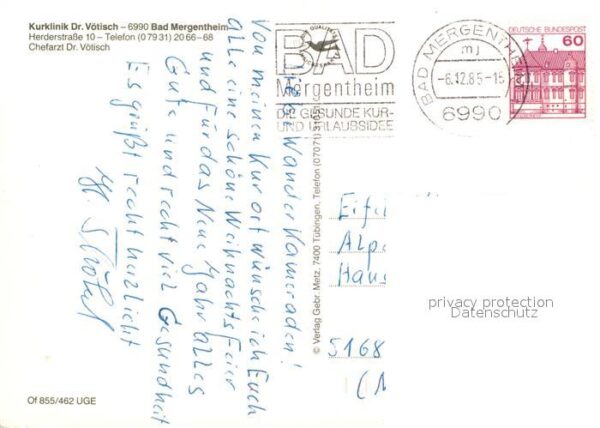 Kurklinik Dr. Vötisch – 6990 Bad Mergentheim
Herderstraße 10 – Telefon (0 79 31) 20 66 – 68
Chefarzt Dr. Vötisch
BAD
Mergentheim
DIE GESUNDE KUR-
UND URLAUBSIDEE
BAD MERGENTHEIM
mj
-6.12.85-15
6990
DEUTSCHE BUNDESPOST
60
Liebe Wanderkameraden!
Von meinen Kurort wünsche ich Euch
alle eine schöne Weihnachtsfeier
und für das Neue Jahr alles
Gute und recht viel Gesundheit
Es grüßt recht herzlicht
© Verlag Gebr. Metz, 7400 Tübingen, Telefon (07071) 31051
Alpe
Haus
5168
privacy protection
Datenschutz
Of 855/462 UGE